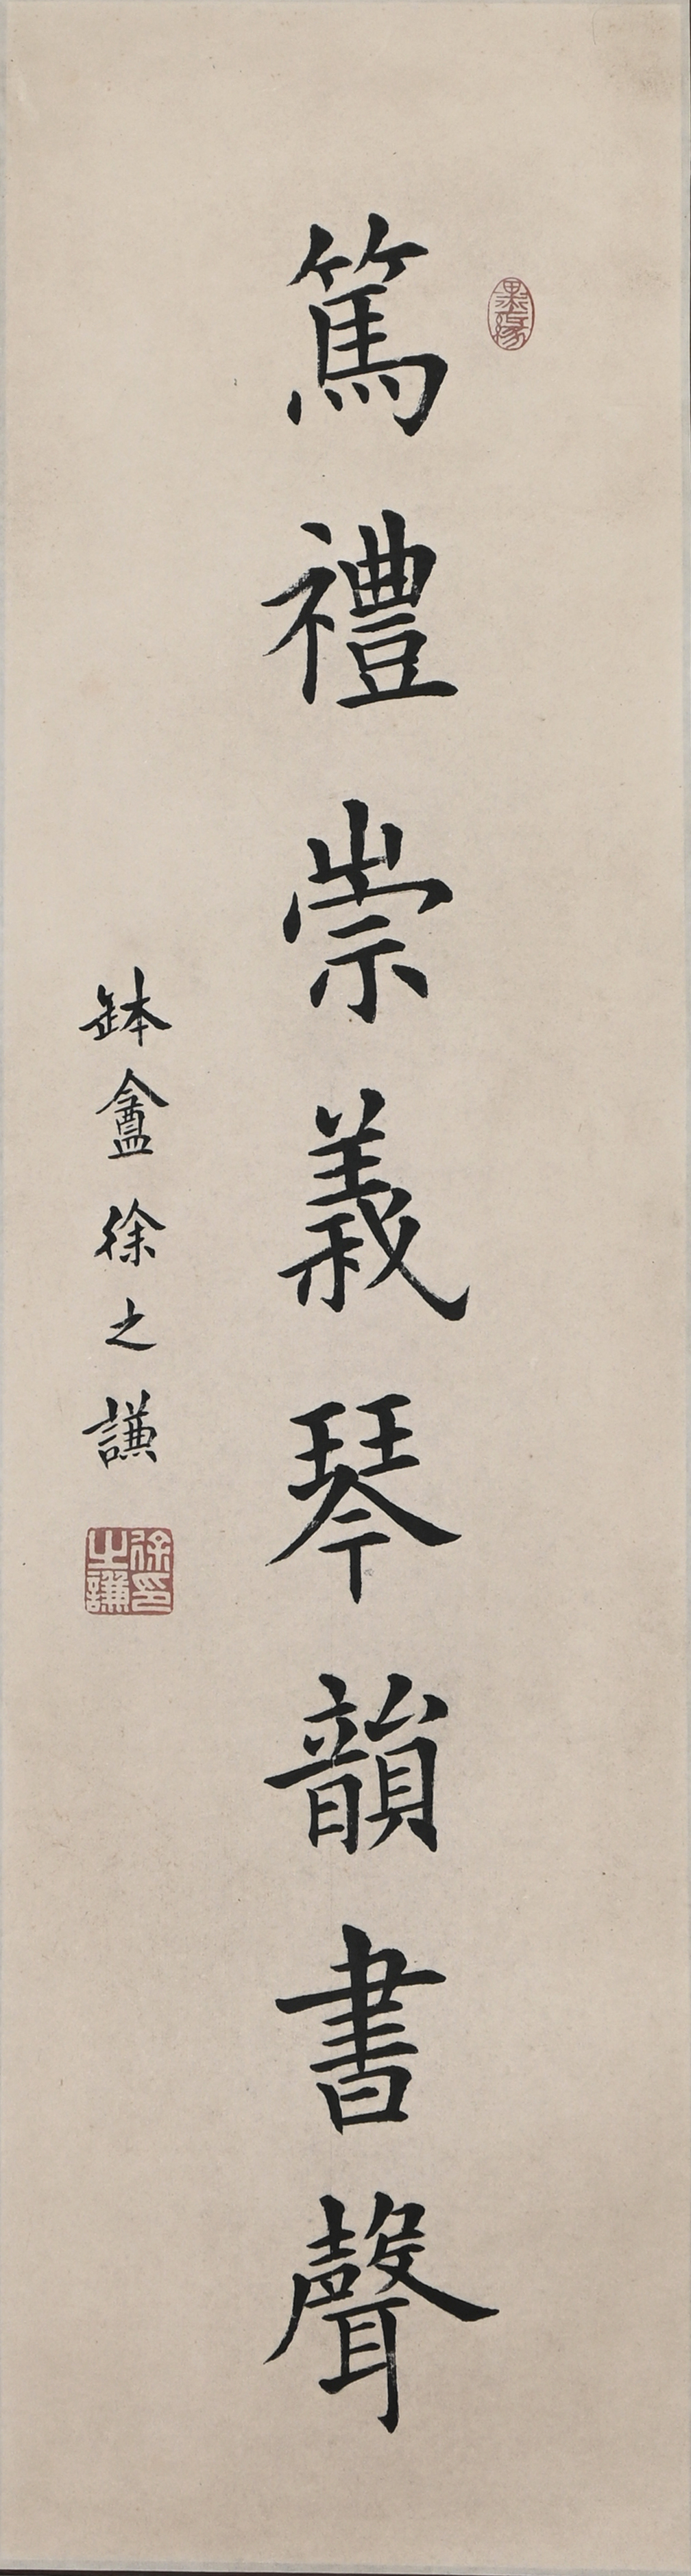 墨緣
篤禮崇義琴韻書聲
缽盦徐之謙
徐之謙印